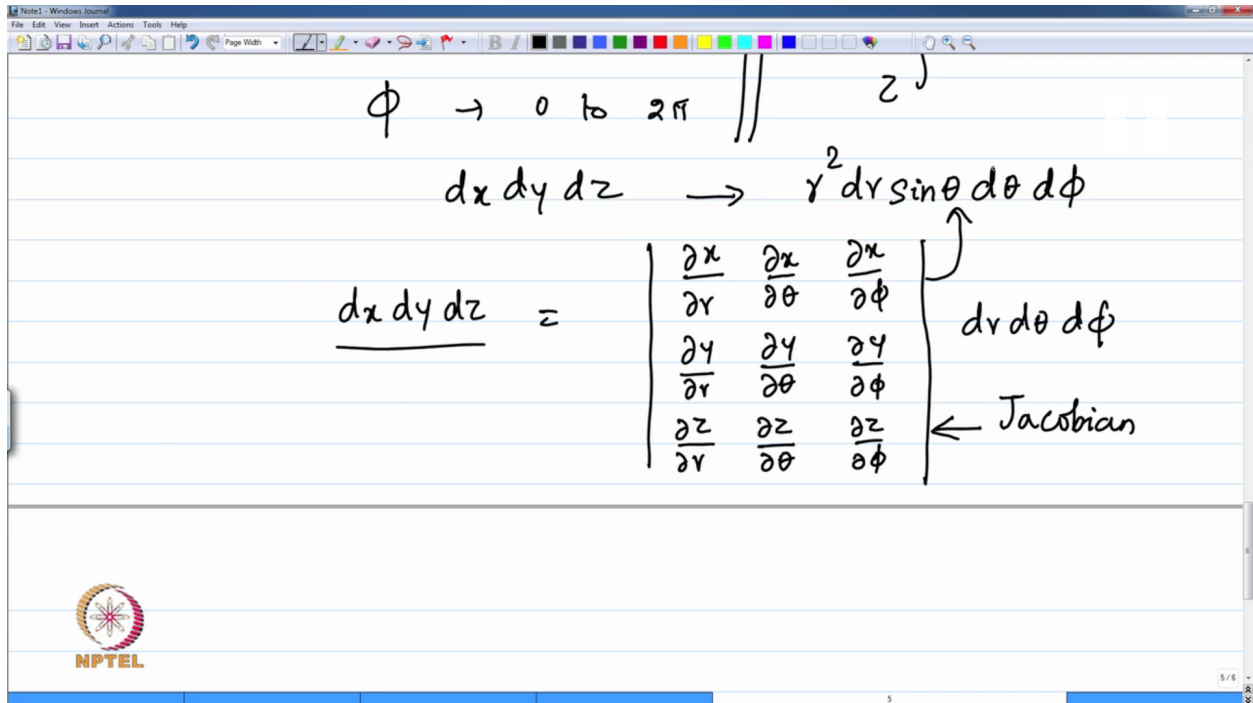 Note1 - Windows Journal
File Edit View Insert Actions Tools Help
Page Width
B I
z
ϕ → 0 to 2π
dx dy dz → r² dr sinθ dθ dϕ
∂x/∂r ∂x/∂θ ∂x/∂ϕ
dx dy dz = dr dθ dϕ
∂y/∂r ∂y/∂θ ∂y/∂ϕ
∂z/∂r ∂z/∂θ ∂z/∂ϕ ← Jacobian
NPTEL
5/6
5